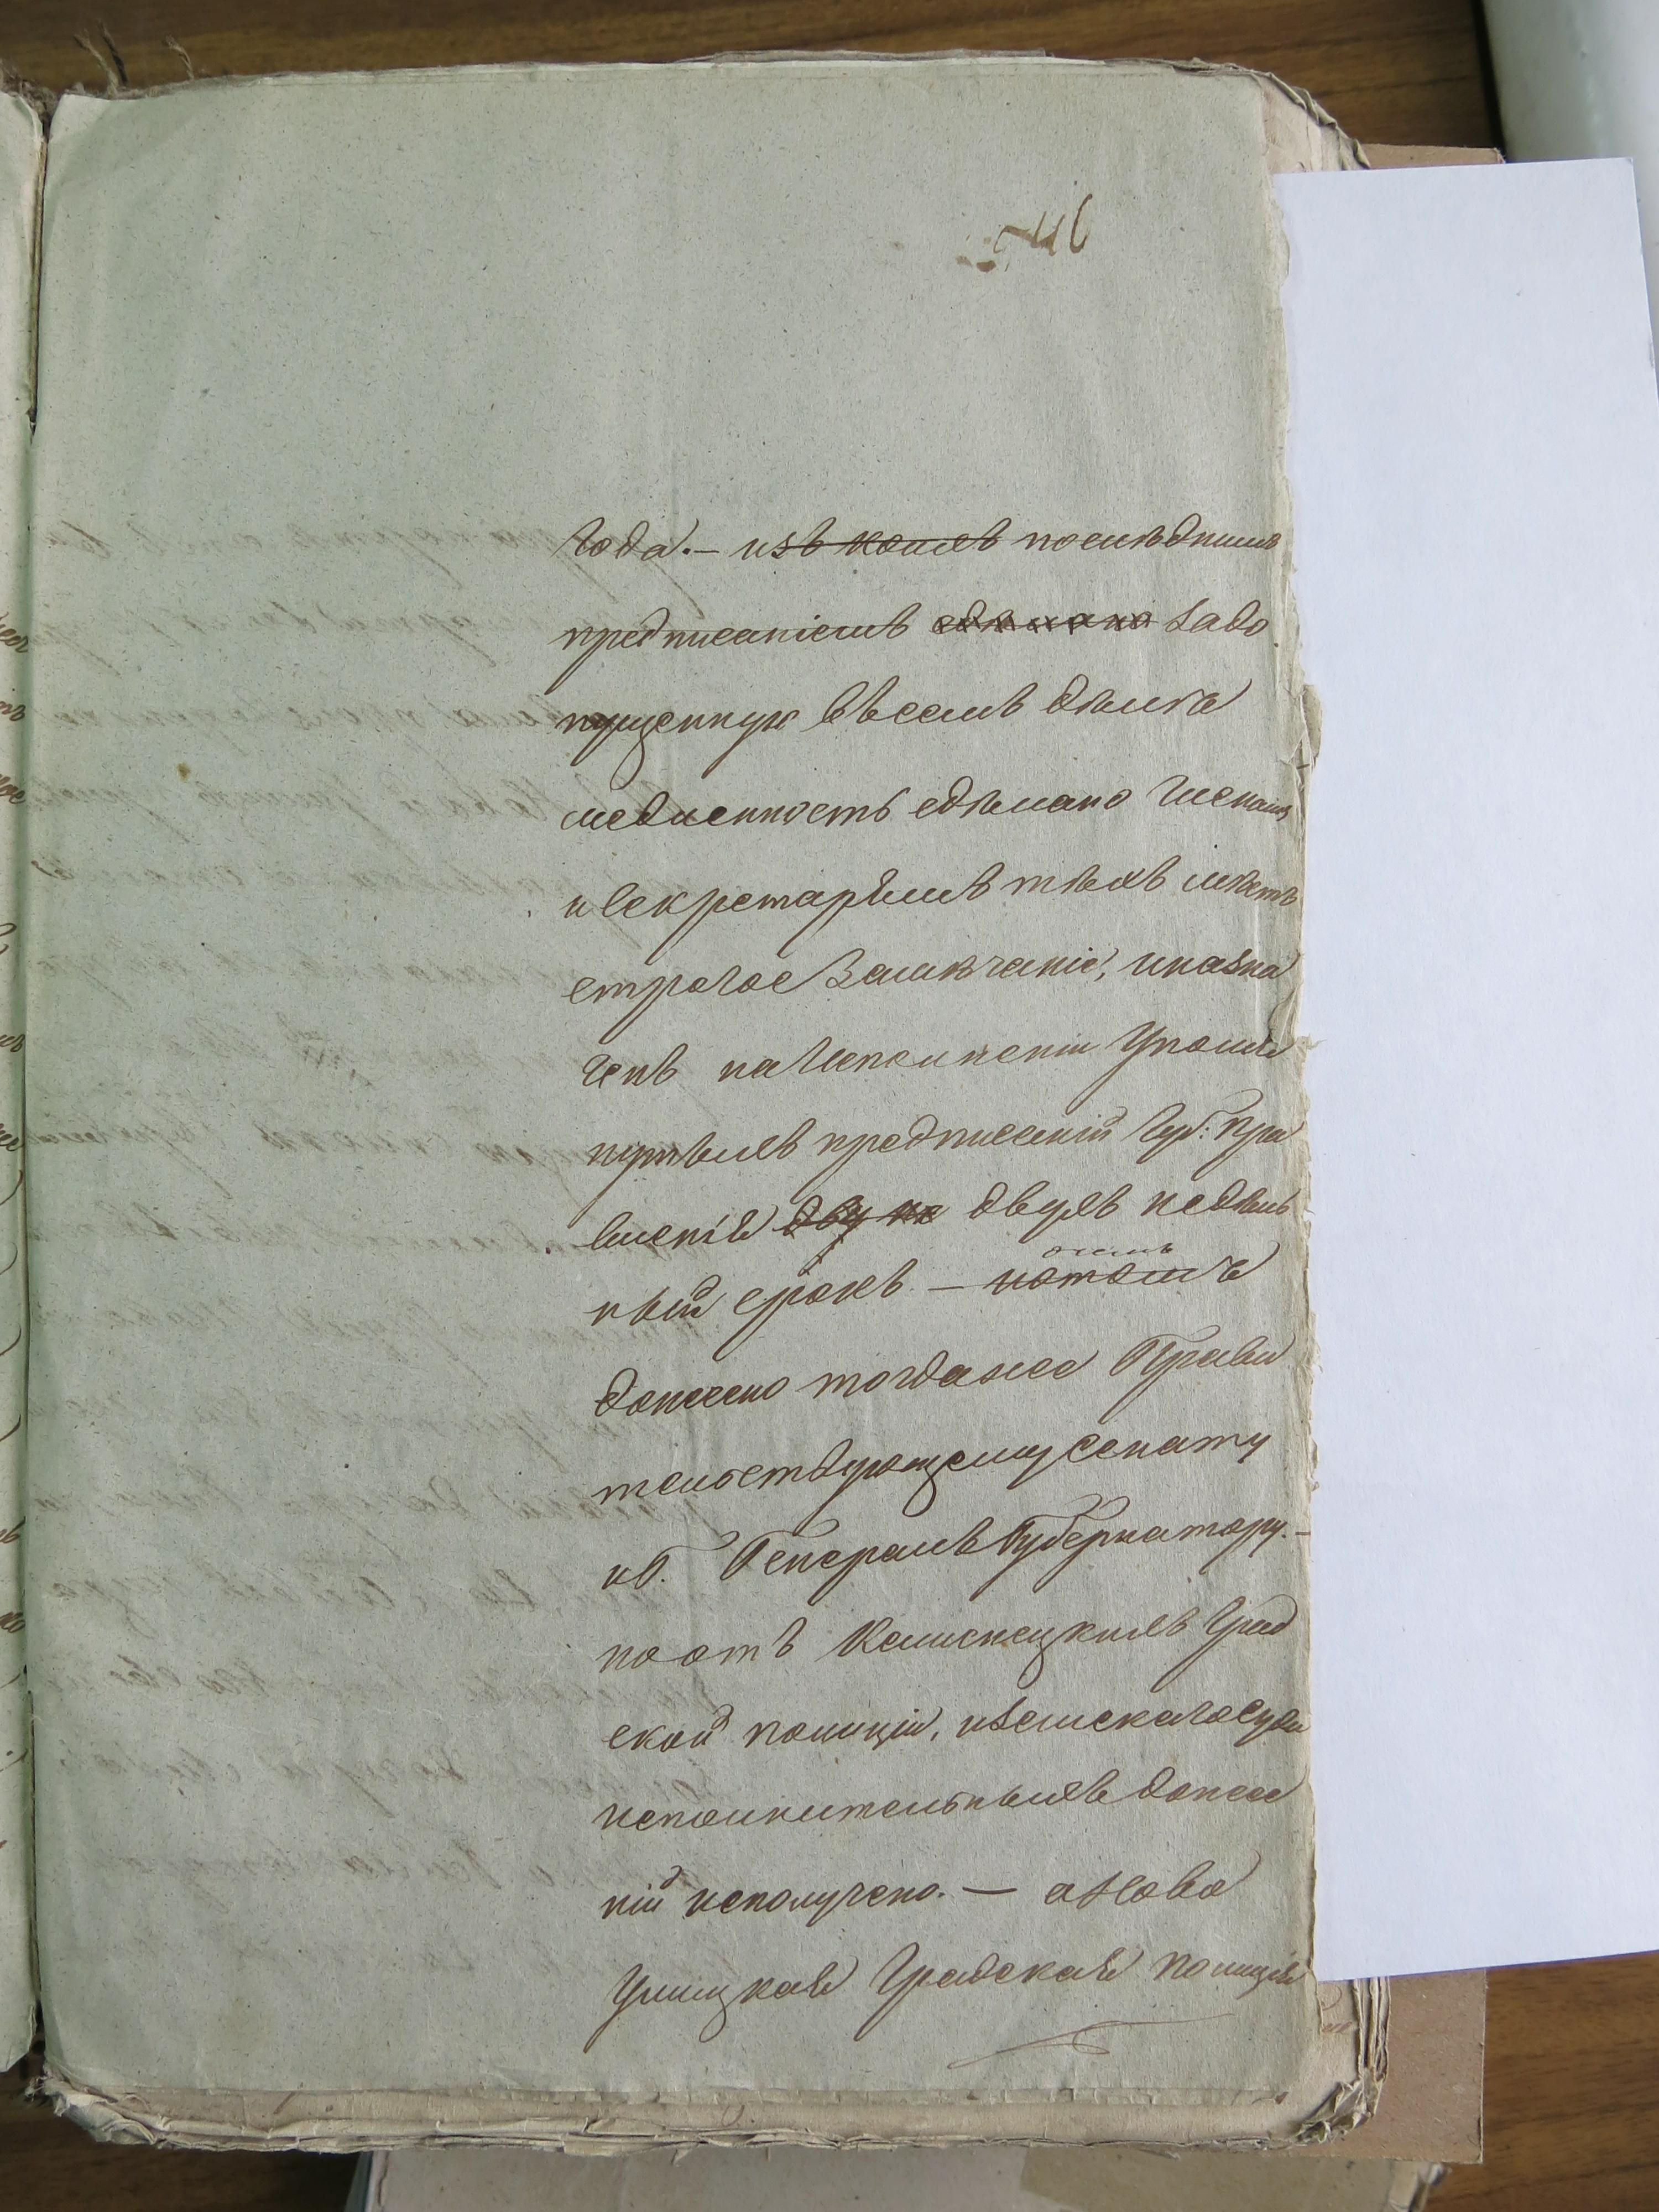 46
года. — изъ коихъ последнимъ
предписаніемъ сделано Задо
пущенную въ семъ дѣлѣ
медленность сдѣлано Членамъ
и Секретарямъ тѣхъ мѣстъ
строгое Замѣчаніе, и назна
ченъ на Исполненіи Упомя
нутыхъ предписаній Губ: Пра
вленія двух не двухъ недѣль
ный срокъ — о чемъ
потомъ
донесено тогда же Прави
тельствующему Сенату
и Г. Генералъ Губернатору. —
но отъ Каменецкихъ Град
ской полиціи, и Земскаго Суда
исполнительныхъ донесе
ній неполучено. — а Ново
Ушицкая Градская полиція